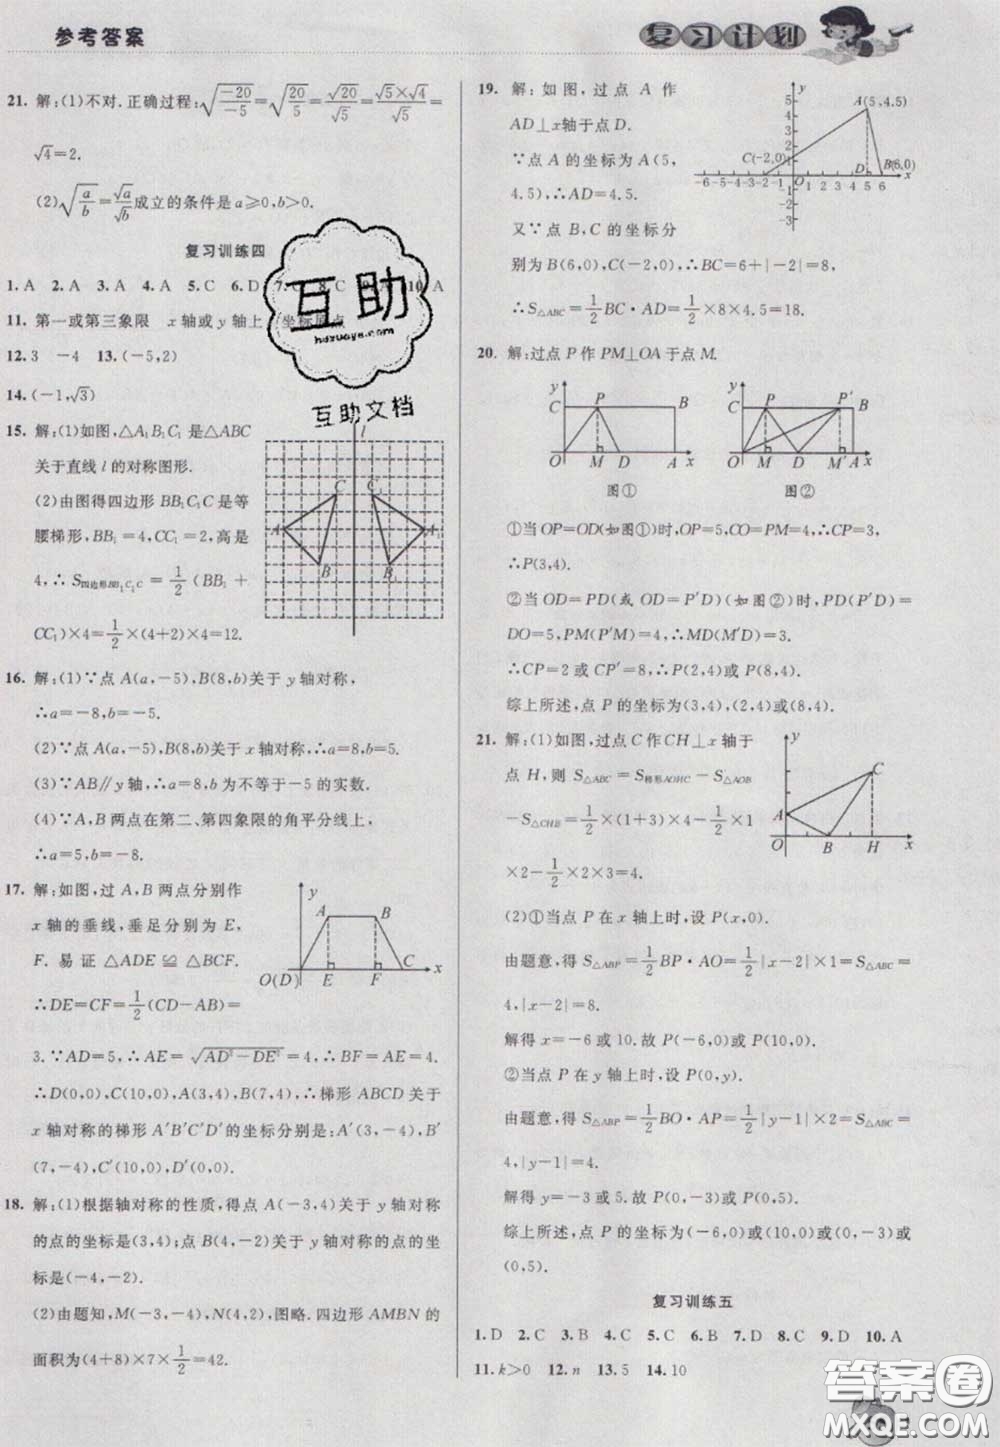 参考答案
复习计划
21. 解:(1)不对. 正确过程:√(-20/-5)=√(20/5)=√20/√5=√(5×4)/√5=
√4=2.
(2)√(a/b)=√a/√b成立的条件是a⩾0,b>0.
复习训练四
1. A 2. A 3. A 4. A 5. C 6. D 7. C 8. C A 10. A
11. 第一或第三象限 x轴或y轴上 坐标原点
12. 3 -4 13. (-5,2)
14. (-1,√3)
15. 解:(1)如图,△A₁B₁C₁是△ABC
关于直线l的对称图形.
(2)由图得四边形BB₁C₁C是等
腰梯形,BB₁=4,CC₁=2,高是
4,∴S四边形BB₁C₁C=1/2(BB₁+
CC₁)×4=1/2×(4+2)×4=12.
l
C C₁
A A₁
B B₁
16. 解:(1)∵点A(a,-5),B(8,b)关于y轴对称,
∴a=-8,b=-5.
(2)∵点A(a,-5),B(8,b)关于x轴对称,∴a=8,b=5.
(3)∵AB∥y轴,∴a=8,b为不等于-5的实数.
(4)∵A,B两点在第二、第四象限的角平分线上,
∴a=5,b=-8.
17. 解:如图,过A,B两点分别作
x轴的垂线,垂足分别为E,
F. 易证△ADE≌△BCF.
∴DE=CF=1/2(CD-AB)=
3. ∵AD=5,∴AE=√(AD²-DE²)=4,∴BF=AE=4.
∴D(0,0),C(10,0),A(3,4),B(7,4),∴梯形ABCD关于
x轴对称的梯形A′B′C′D′的坐标分别是:A′(3,-4),B′
(7,-4),C′(10,0),D′(0,0).
y
A B
O(D) E F C x
18. 解:(1)根据轴对称的性质,得点A(-3,4)关于y轴对称
的点的坐标是(3,4);点B(4,-2)关于y轴对称的点的坐
标是(-4,-2).
(2)由题知,M(-3,-4),N(4,2),图略. 四边形AMBN的
面积为(4+8)×7×1/2=42.
19. 解:如图,过点A作
AD⊥x轴于点D.
∵点A的坐标为A(5,
4.5),∴AD=4.5.
又∵点B,C的坐标分
别为B(6,0),C(-2,0),∴BC=6+|-2|=8,
∴S△ABC=1/2BC·AD=1/2×8×4.5=18.
y
5
4
3
2
1
A(5,4.5)
C(-2,0)
D B(6,0)
-6 -5 -4 -3 -2 -1 O 1 2 3 4 5 6 x
-1
-2
-3
20. 解:过点P作PM⊥OA于点M.
y
C P B
O M D A x
图①
y
C P P′ B
O M D M′ A x
图②
①当OP=OD(如图①)时,OP=5,CO=PM=4,∴CP=3,
∴P(3,4).
②当OD=PD(或OD=P′D)(如图②)时,P′D=PD=
DO=5,PM(P′M)=4,∴MD(M′D)=3.
∴CP=2或CP′=8,∴P(2,4)或P(8,4).
综上所述,点P的坐标为(3,4),(2,4)或(8,4).
21. 解:(1)如图,过点C作CH⊥x轴于
点H,则S△ABC=S梯形AOHC-S△AOB
-S△CHB=1/2×(1+3)×4-1/2×1
×2-1/2×2×3=4.
y
C
A
O B H x
(2)①当点P在x轴上时,设P(x,0).
由题意,得S△ABP=1/2BP·AO=1/2|x-2|×1=S△ABC=
4,|x-2|=8.
解得x=-6或10. 故P(-6,0)或P(10,0).
②当点P在y轴上时,设P(0,y).
由题意,得S△ABP=1/2BO·AP=1/2|y-1|×2=S△ABC=
4,|y-1|=4.
解得y=-3或5. 故P(0,-3)或P(0,5).
综上所述,点P的坐标为(-6,0)或(10,0)或(0,-3)或
(0,5).
复习训练五
1. D 2. C 3. B 4. C 5. C 6. B 7. D 8. C 9. D 10. A
11. k>0 12. n 13. 5 14. 10
互助
huzuoye.com
互助文档
答案圈
MXQE.COM